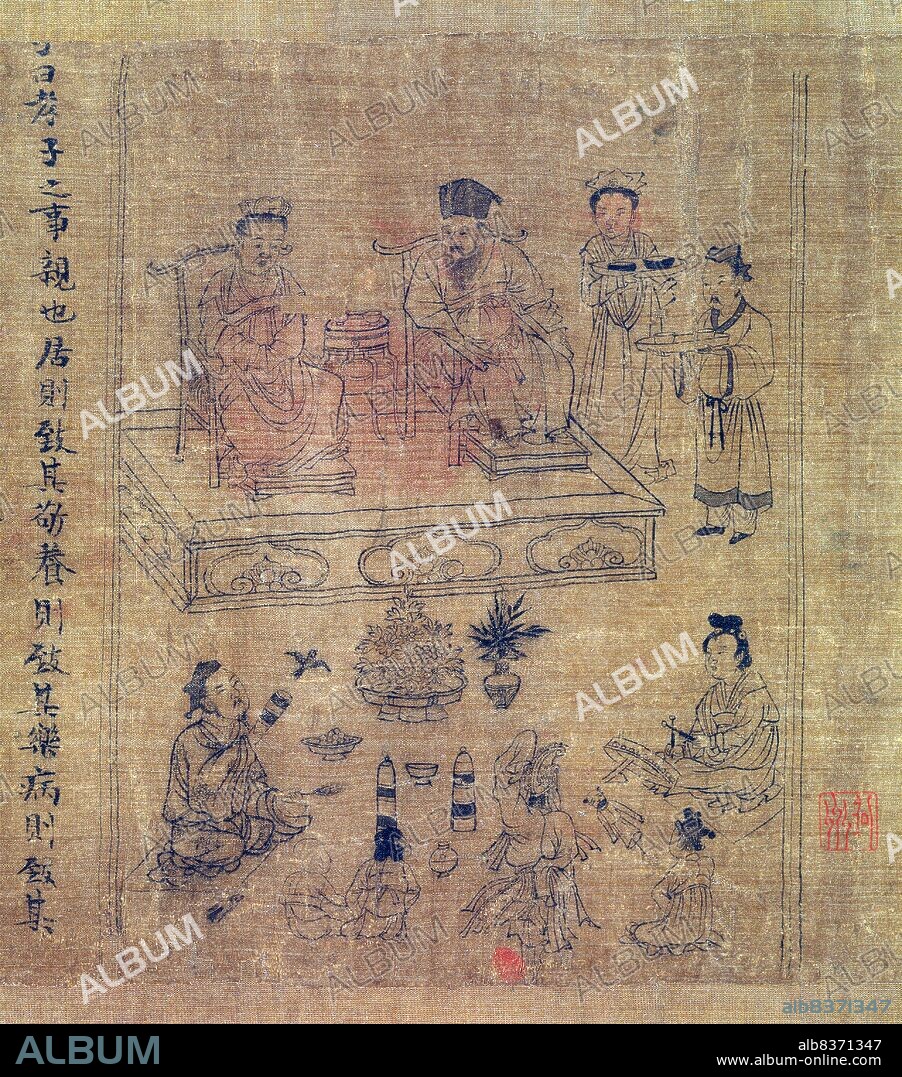 曰孝子之事親也居則致其敬養則致其樂病則致其
ALBUM
ALBUM
ALBUM
ALBUM
ALBUM
alb8371347
ALBUM
alb8371347
www.album-online.com